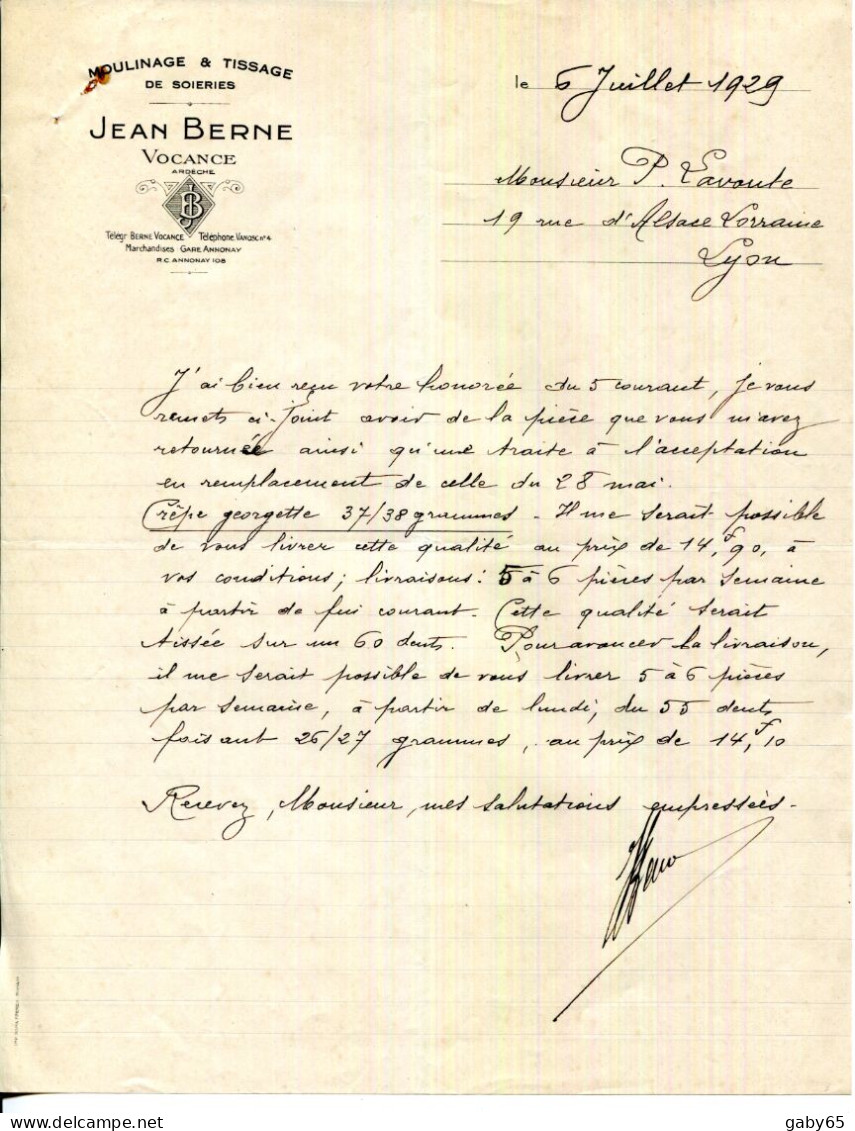 MOULINAGE & TISSAGE
DE SOIERIES
JEAN BERNE
VOCANCE
ARDÈCHE
JB
Télégr. BERNE VOCANCE Téléphone VANOSC N° 4
Marchandises - GARE ANNONAY
R.C. ANNONAY 108
le 6 Juillet 1929
Monsieur P. Lavoute
19 rue d'Alsace Lorraine
Lyon
J'ai bien reçu votre honorée du 5 courant, je vous
remets ci-joint avoir de la pièce que vous m'avez
retournée ainsi qu'une traite à l'acceptation
en remplacement de celle du 28 mai.
Crêpe georgette 37/38 grammes - Il me serait possible
de vous livrer cette qualité au prix de 14,f90, à
vos conditions; livraisons: 5 à 6 pièces par semaine
à partir de fin courant. Cette qualité serait
tissée sur un 60 dents. Pour avancer la livraison,
il me serait possible de vous livrer 5 à 6 pièces
par semaine, à partir de lundi, du 55 dents
faisant 26/27 grammes, au prix de 14,f10
Recevez, Monsieur, mes salutations empressées -
gaby65